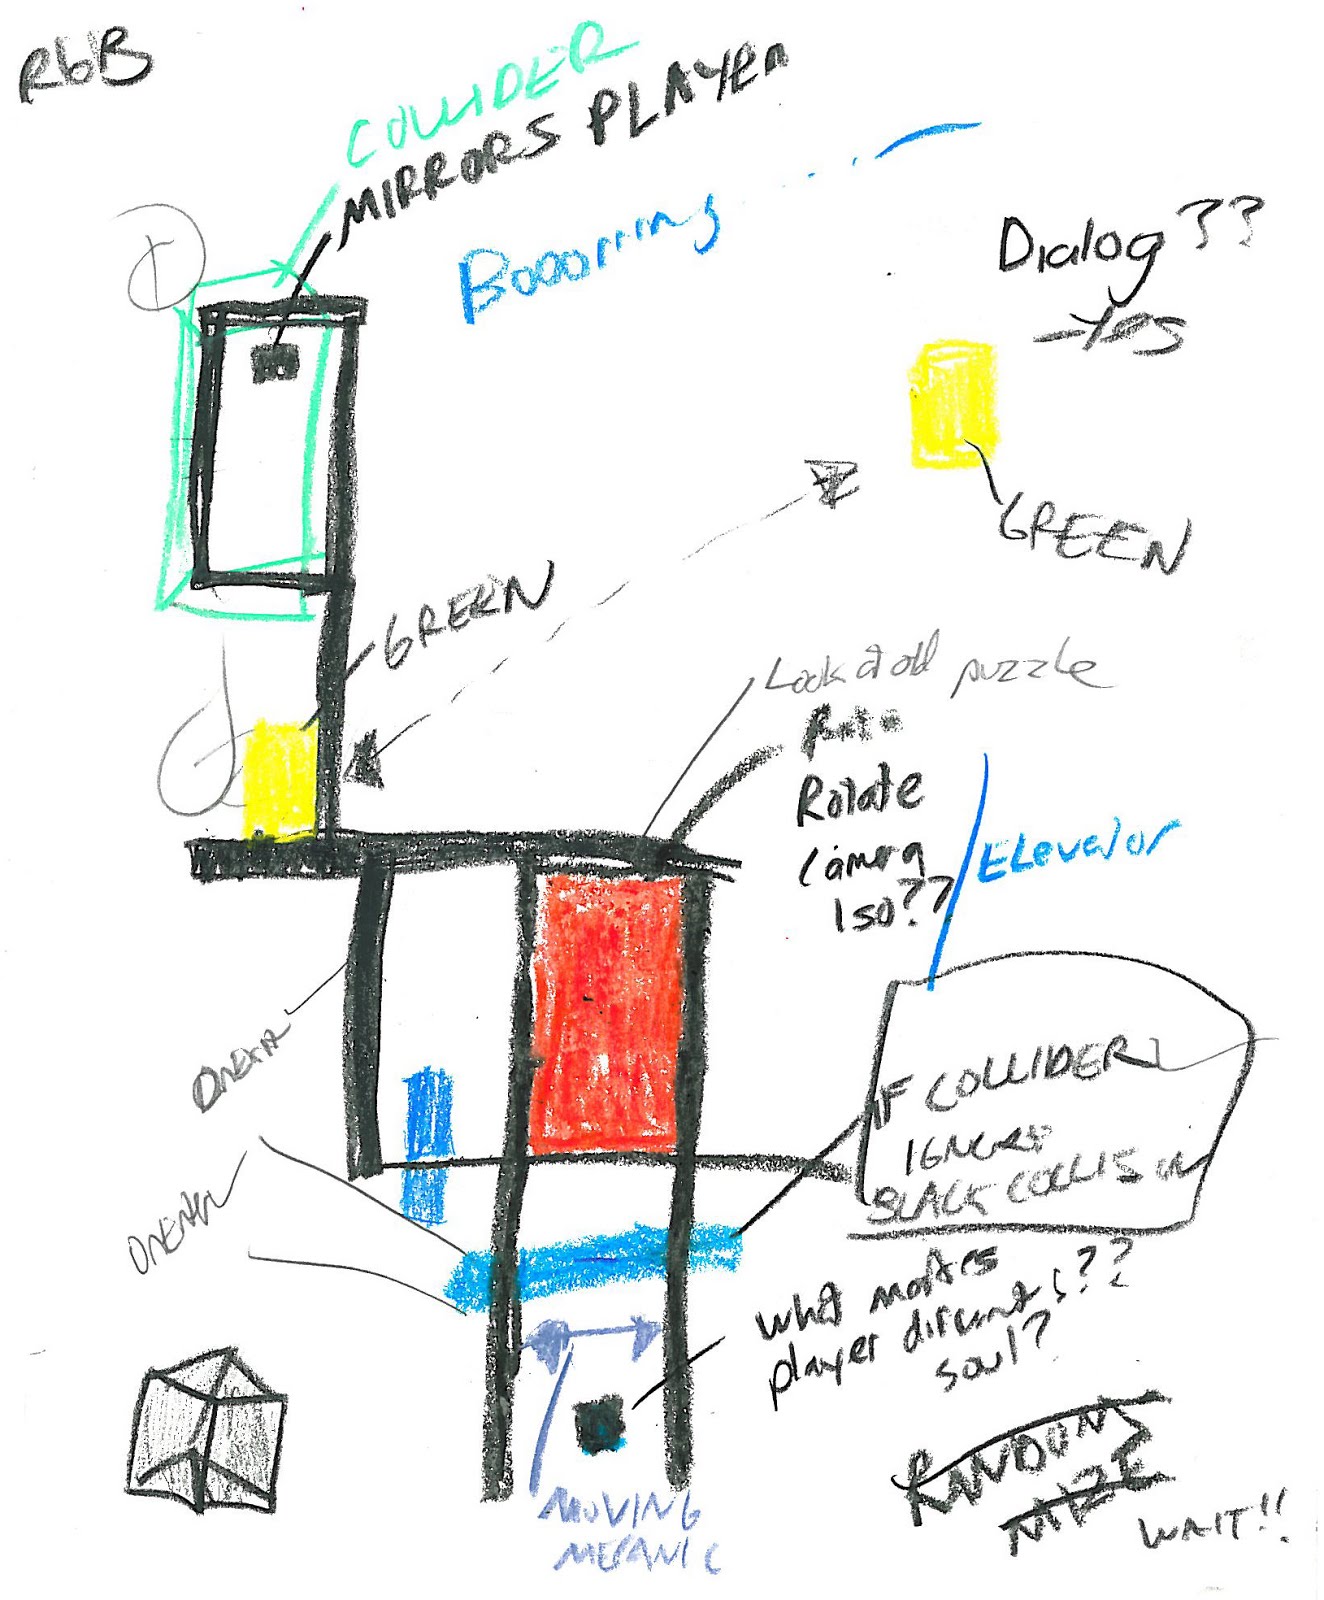 RbB
COLLIDER
MIRRORS PLAYER
Booorring
Dialog??
-Yes
GREEN
GREEN
Look at old puzzle
Rotate
Camera
Iso??
Elevator
IF COLLIDER
IGNORE
BLACK COLLISION
What makes
player different is??
soul?
MOVING
MECANIC
RANDOM
MIZE
WAIT!!